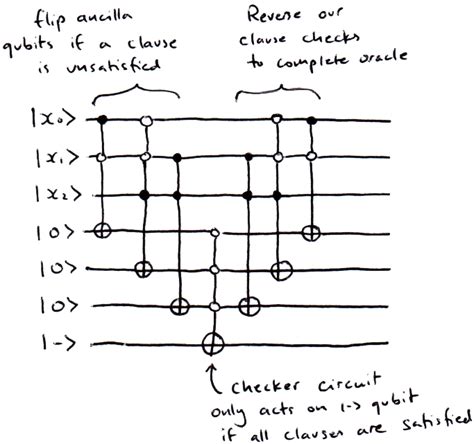 flip ancilla
qubits if a clause
is unsatisfied
Reverse our
clause checks
to complete oracle
|x₀>
|x₁>
|x₂>
|0>
|0>
|0>
|->
checker circuit
only acts on |-> qubit
if all clauses are satisfied